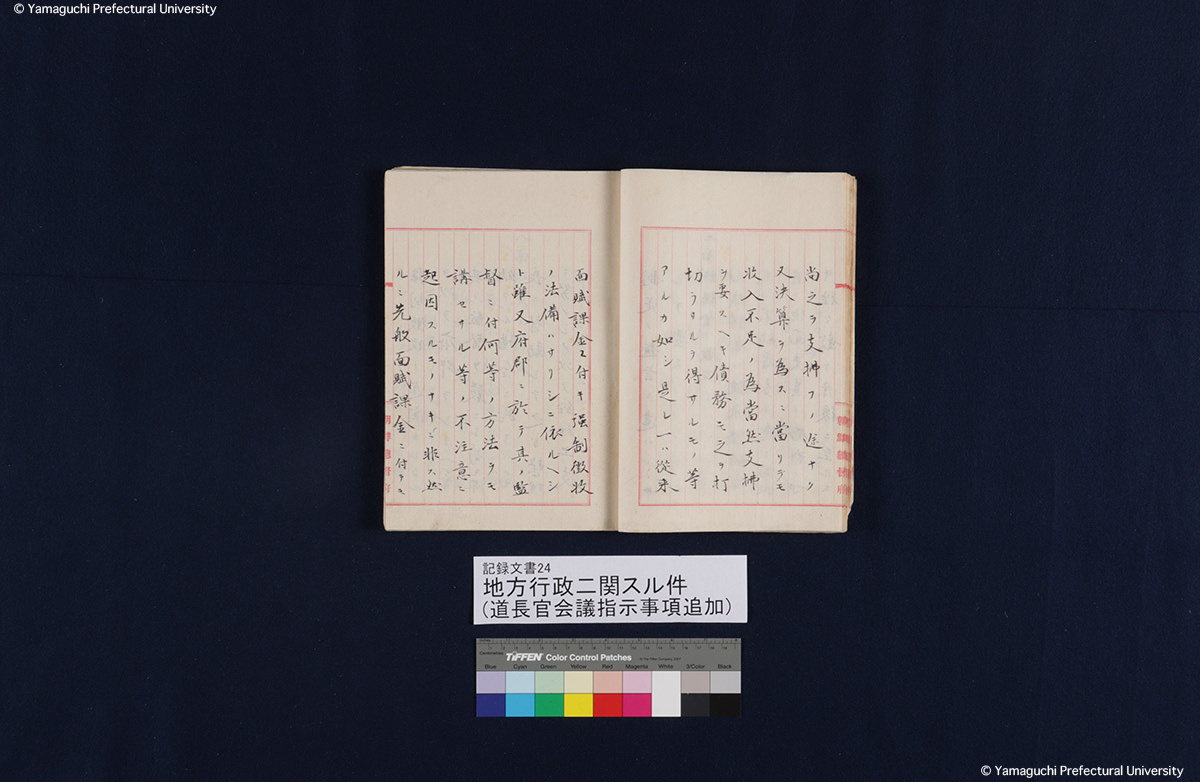 © Yamaguchi Prefectural University
尚之ヲ支拂フノ途ナク
又決算ヲ為スニ當リテモ
收入不足ノ為當然支拂
ヲ要スヘキ債務モ之ヲ打
切ラサルヲ得サルモノ等
アルカ如シ是レ一ハ從来
面賦課金ニ付キ强制徴收
ノ法備ハサリシニ依ルヘシ
ト雖又府郡ニ於テ其ノ監
督ニ付何等ノ方法ヲモ
講セサル等ノ不注意ニ
起因スルモノナキニ非ス然
ルニ先般面賦課金ニ付テモ
朝鮮總督府
記録文書24
地方行政ニ関スル件
(道長官会議指示事項追加)
TIFFEN Color Control Patches
Blue Cyan Green Yellow Red Magenta White 3/Color Black
© Yamaguchi Prefectural University